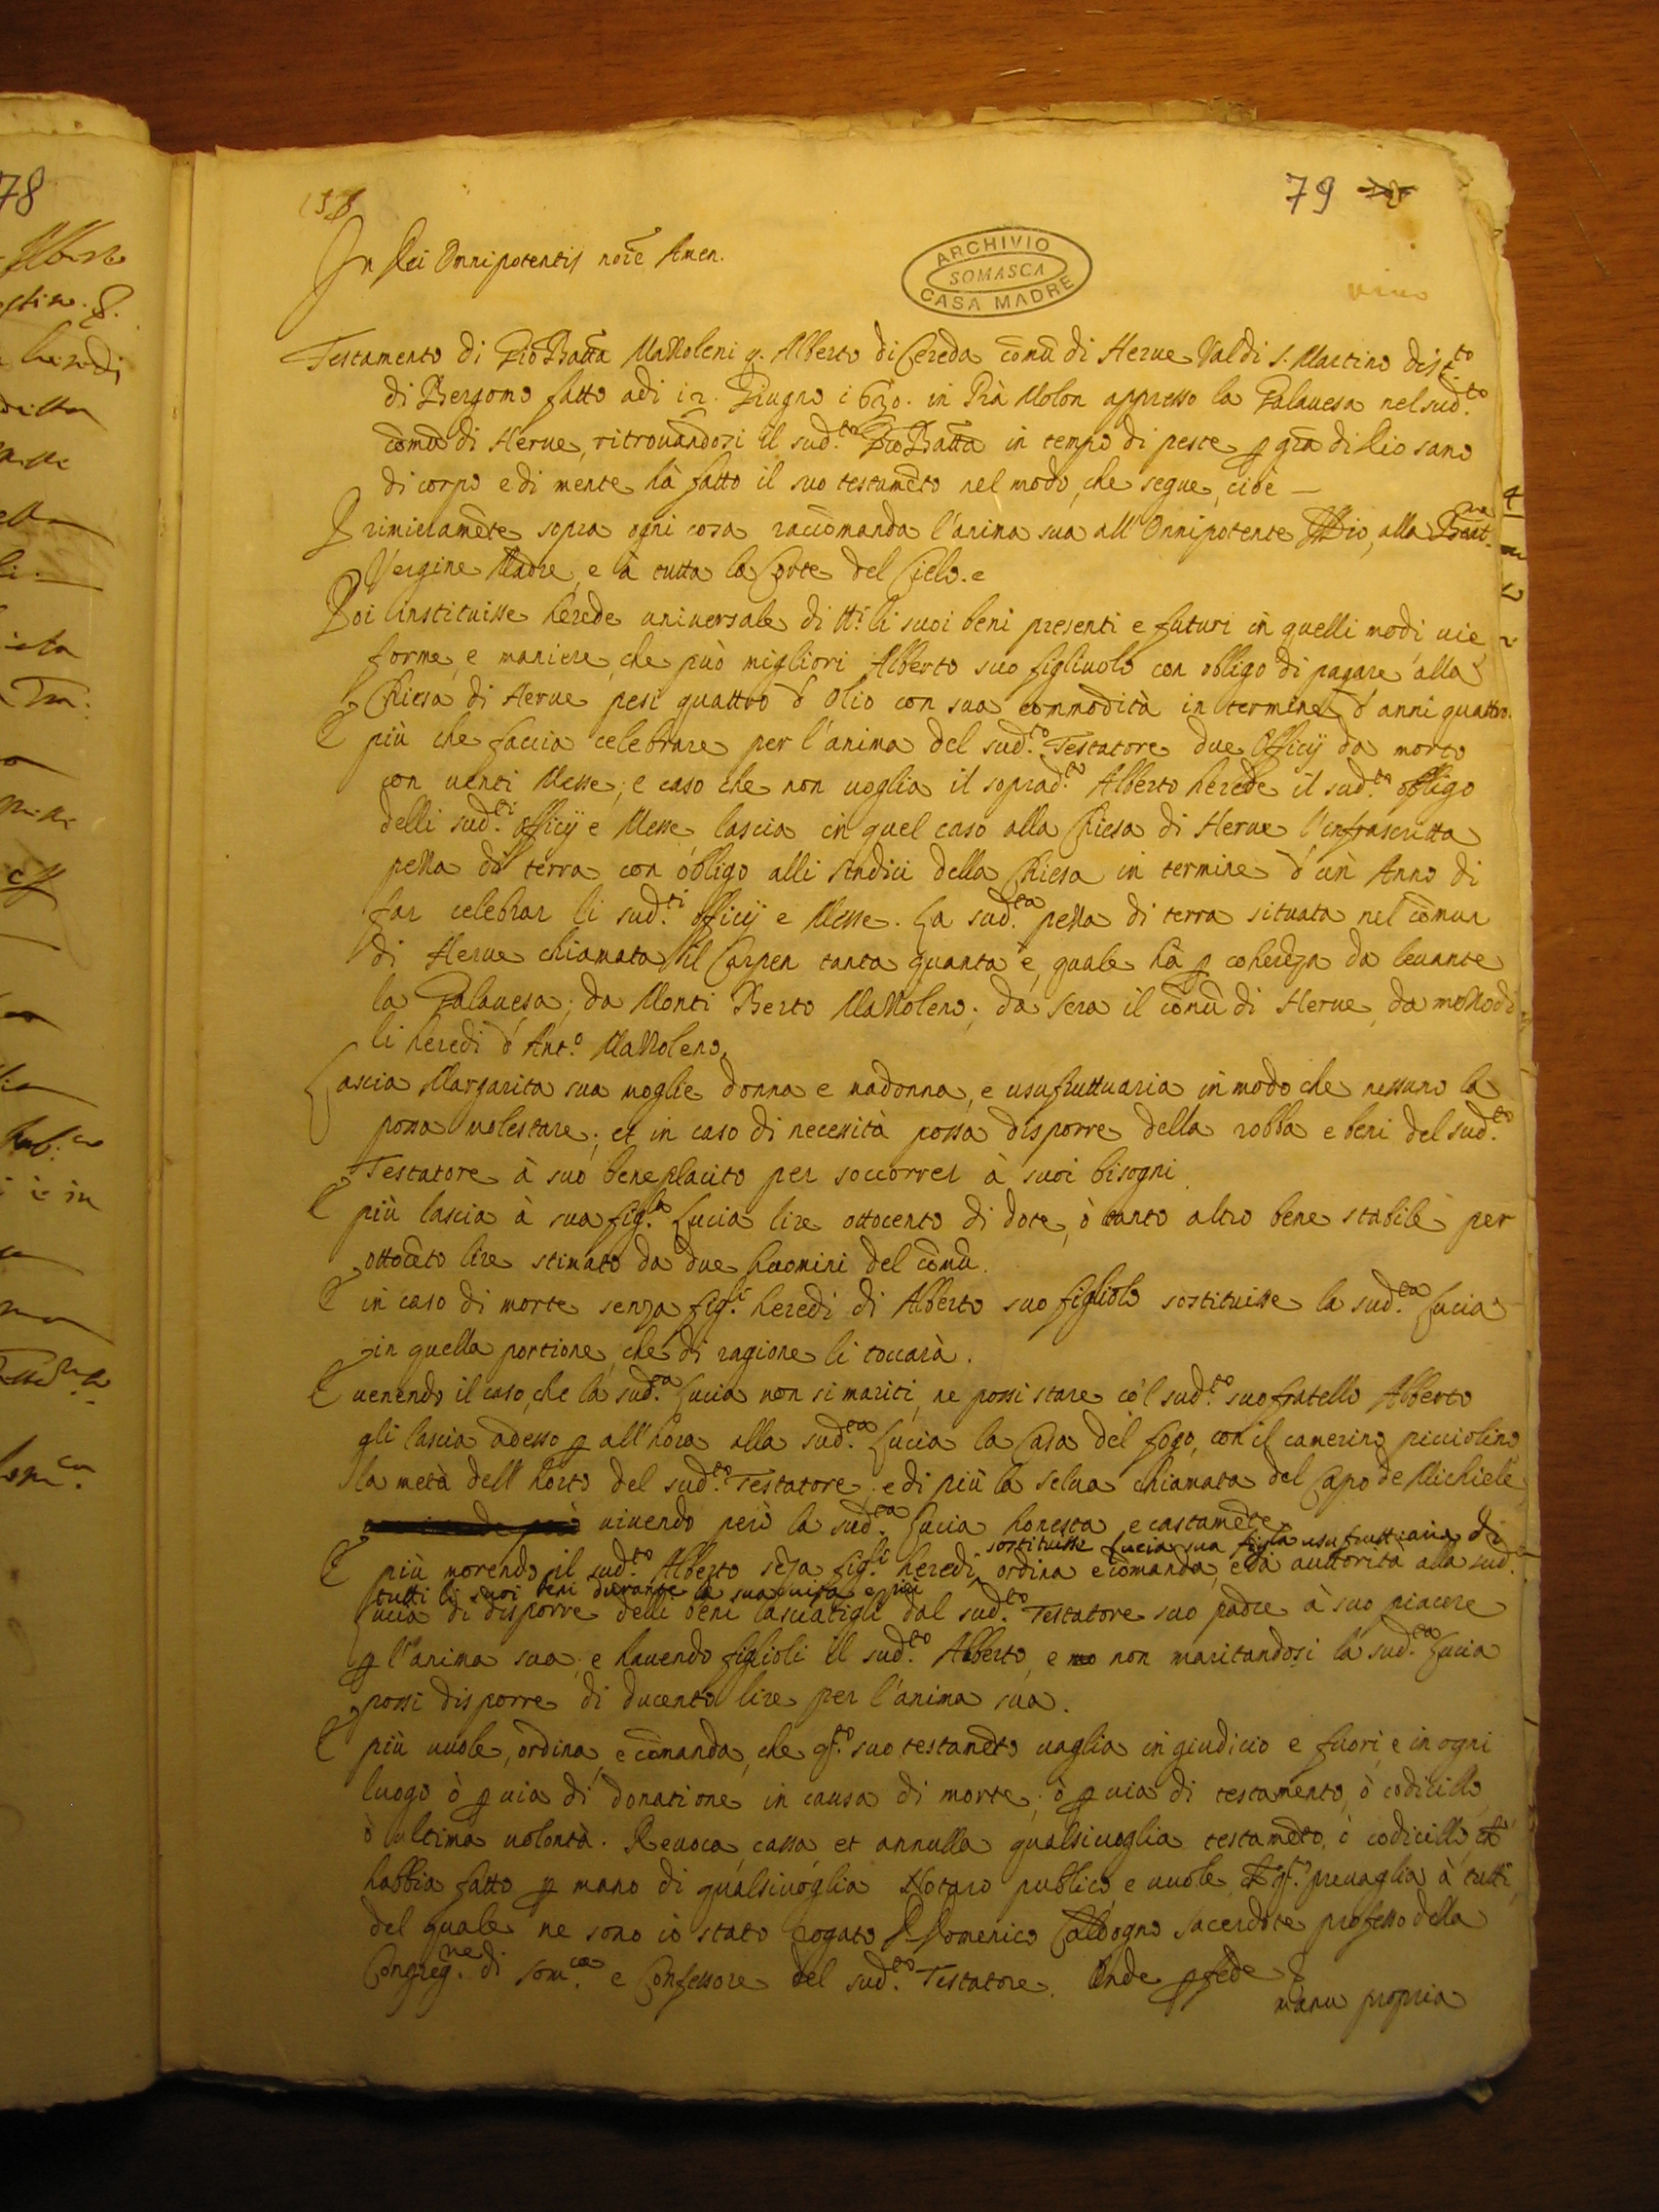 78
79
ARCHIVIO
SOMASCA
CASA MADRE
In Dei Omnipotentis noīe Amen.
Testamento di Gio Batta Mazzoleni q. Alberto di Cereda comū di Herue Val di S. Martino dist.to
di Bergomo fatto adi 12. Giugno 1630. in Prà Molon appresso la Galauesa nel sud.to
comū di Herue, ritrouandosi il sud.to Gio Batta in tempo di peste p gr̄a di Dio sano
di corpo e di mente hà fatto il suo testamēto nel modo, che segue, cioè —
Primieramēte sopra ogni cosa raccōmanda l'anima sua all'Onnipotente Iddio, alla Beat.ma
Vergine Madre, e à tutta la Corte del Cielo. e
Poi instituisse herede uniuersale di tt.i li suoi beni presenti e futuri in quelli modi, uie
forme, e maniere, che può migliori Alberto suo figliuolo con obligo di pagare alla
Chiesa di Herue pesi quattro d'olio con sua commodità in termine d'anni quattro.
E più che faccia celebrare per l'anima del sud.to Testatore due Officij da morto
con uenti Messe; e caso che non uoglia il soprad.to Alberto herede il sud.to obligo
delli sud.ti officij e Messe lascia in quel caso alla Chiesa di Herue l'infrascritta
pezza di terra con obligo alli Sindici della Chiesa in termine d'un Anno di
far celebrar li sud.ti officij e Messe. La sud.ta pezza di terra situata nel comun
di Herue chiamata il Carpen tanta quanta è, quale hà p coherēza da leuante
la Galauesa; da Monti Berto Mazzoleno; da sera il comū di Herue, da mezzodì
li heredi d'Ant.o Mazzoleno.
Lascia Margarita sua moglie donna e madonna, e usufruttuaria in modo che nessuno la
possa molestare; et in caso di necessità possa disporre della robba e beni del sud.to
Testatore à suo beneplacito per soccorrer à suoi bisogni.
E più lascia à sua fig.la Lucia lire ottocento di dote, ò tanto altro bene stabile per
ottocēto lire stimato da due huomini del comū.
E in caso di morte senza fig.li heredi di Alberto suo figliolo sostituisse la sud.ta Lucia
in quella portione, che di ragione li toccarà.
E uenendo il caso, che la sud.ta Lucia non si mariti, ne possi stare cō'l sud.to suo fratello Alberto
gli lascia adesso p all'hora alla sud.ta Lucia la Casa del fogo, con il camerino picciolino
la metà dell'horto del sud.to Testatore, e di più la selua chiamata del Capo de Michiele,
uiuendo però la sud.ta Lucia honesta e castamēte.
sostituisse Lucia sua figla usufruttuaria di
E più morendo il sud.to Alberto sēza fig.li heredi, ordina e comanda, e dà auttorità alla sud.ta
tutti li suoi beni durante la sua uita e più
Lucia di disporre delli beni lasciatigli dal sud.to Testatore suo padre à suo piacere
p l'anima sua, e hauendo figlioli il sud.to Alberto, e non maritandosi la sud.ta Lucia
possi disporre di ducento lire per l'anima sua.
E più uuole, ordina, e comanda, che qst.o suo testamēto uaglia in giudicio e fuori, e in ogni
luogo ò p uia di donatione in causa di morte; ò p uia di testamento, ò codicillo,
ò ultima uolontà. Reuoca, cassa, et annulla qualsiuoglia testamēto, ò codicillo, ch'
habbia fatto p mano di qualsiuoglia Notaro publico, e uuole ch' qst.o preuaglia à tutti,
del quale ne sono io stato rogato D. Domenico Caldogno sacerdote professo della
Congreg.ne di Som.ca e Confessore del sud.to Testatore. Onde p fede &
manu propria